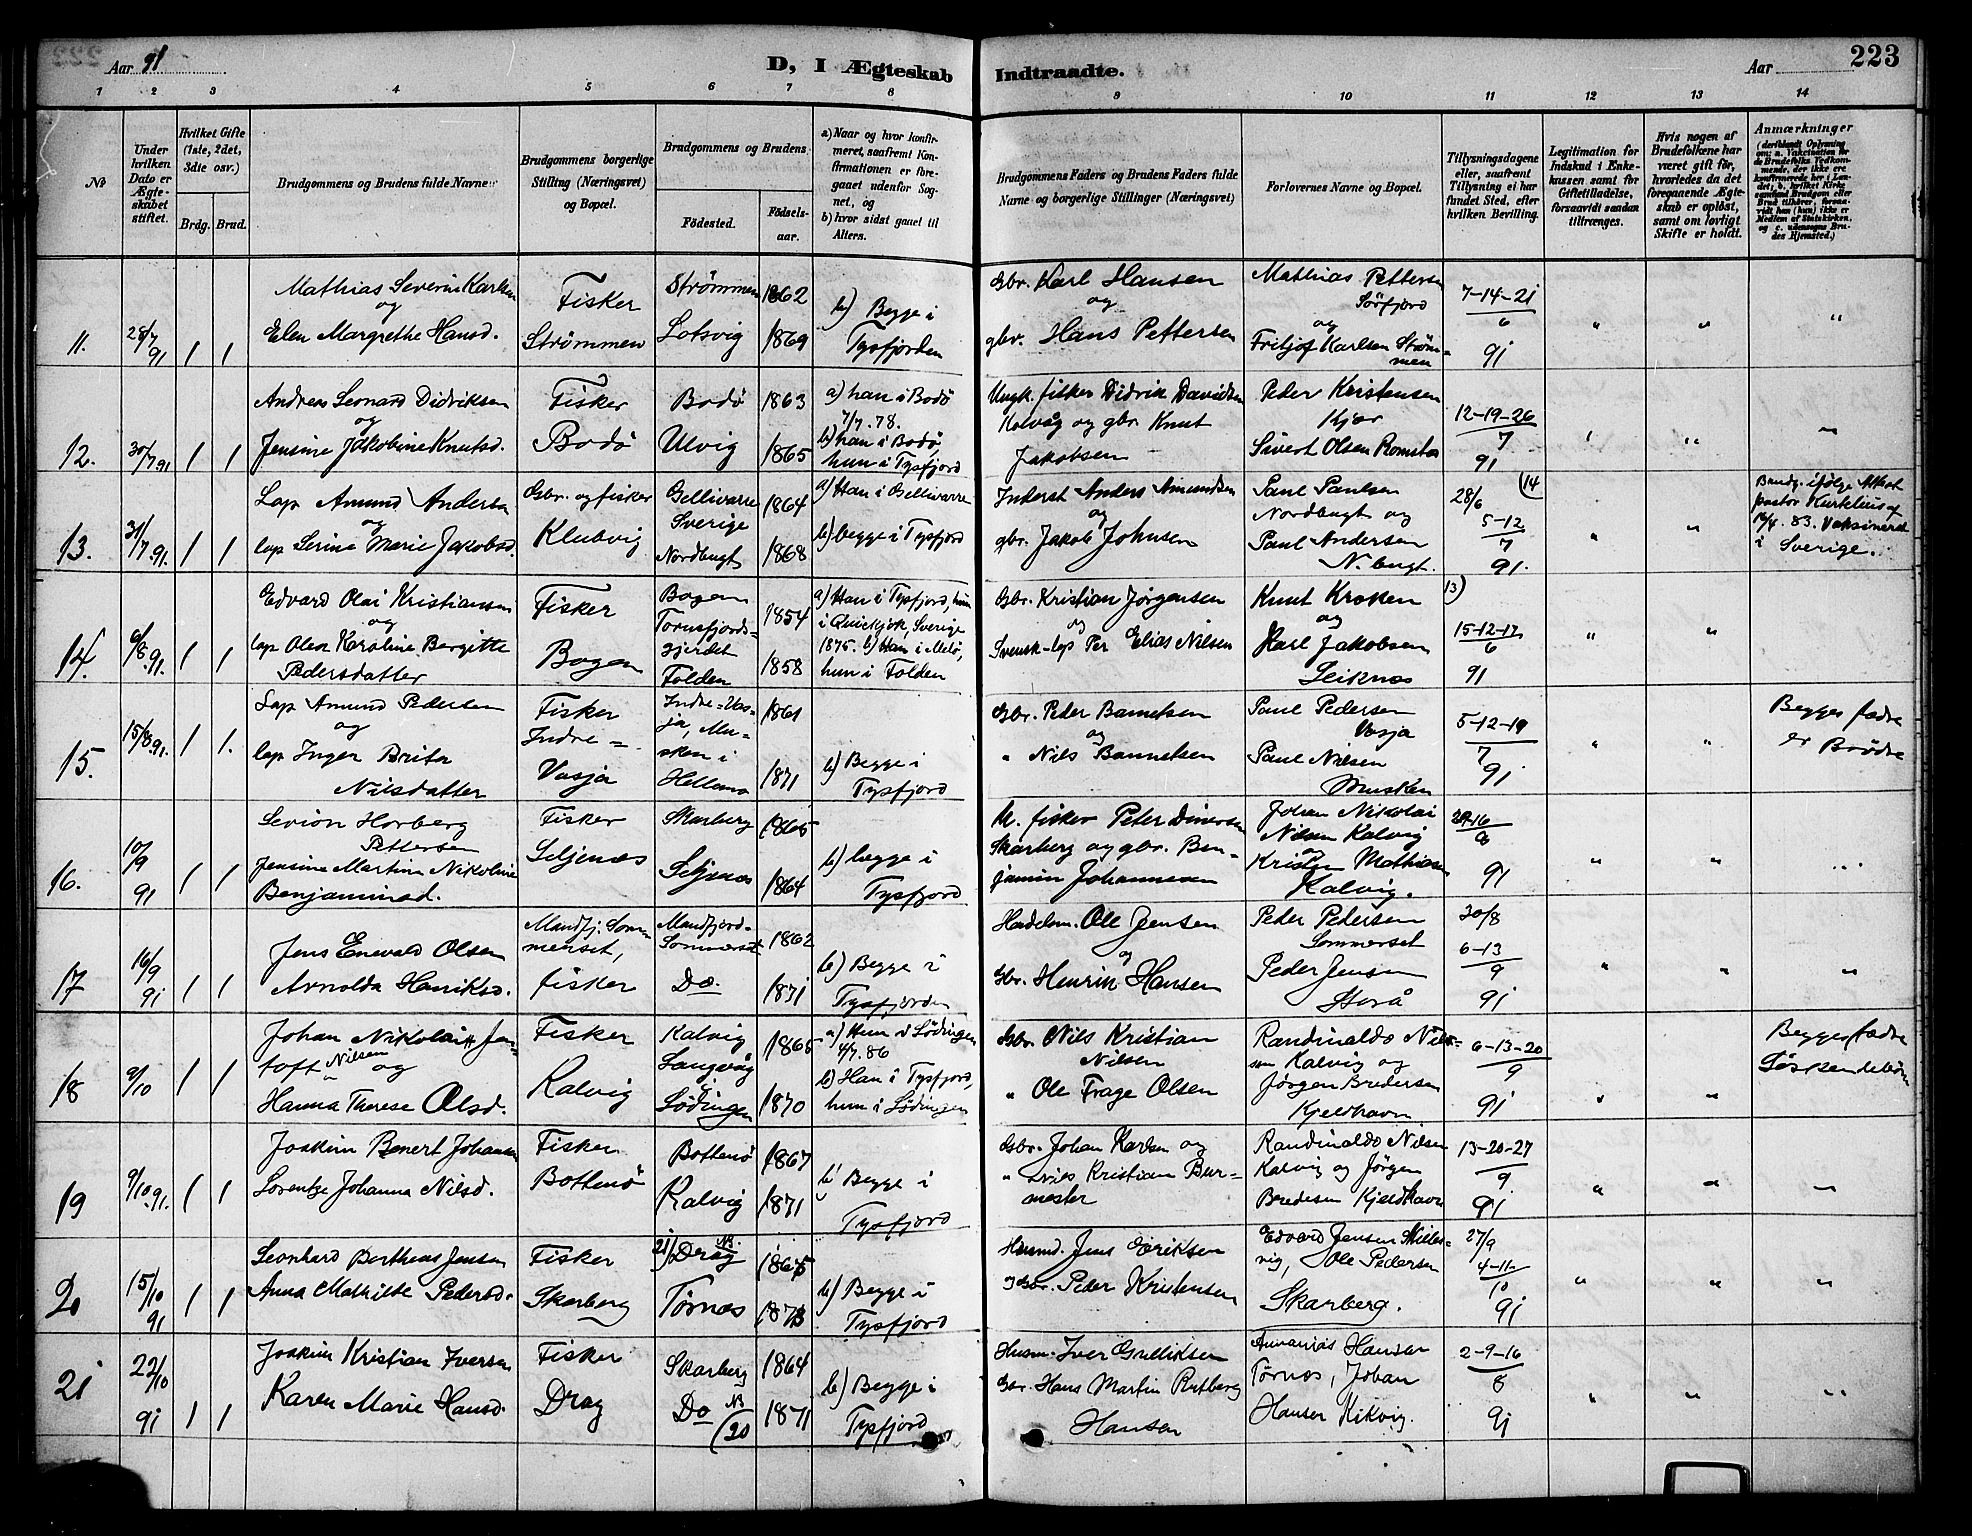 Aar 91
D, I Ægteskab
Indtraadte.
Aar
223
1 2 3 4 5 6 7 8 9 10 11 12 13 14
No
Under hvilken Dato er Ægteskabet stiftet.
Hvilket Gifte (1ste, 2det, 3die osv.)
Brdg. Brud.
Brudgommens og Brudens fulde Navne
Brudgommens borgerlige Stilling (Næringsvei) og Bopæl.
Brudgommens og Brudens
Fødested.
Fødselsaar.
a) Naar og hvor konfirmeret, saafremt Konfirmationen er foregaaet udenfor Sognet, og
b) hvor sidst gaaet til Alters.
Brudgommens Faders og Brudens Faders fulde Navne og borgerlige Stillinger (Næringsvei)
Forlovernes Navne og Bopæl.
Tillysningsdagene eller, saafremt Tillysning ei har fundet Sted, efter hvilken Bevilling.
Legitimation for Indskud i Enkekassen samt for Giftetilladelse, forsaavidt saadan tiltrænges.
Hvis nogen af Brudefolkene har været gift før, hvorledes da det foregaaende Ægteskab er opløst, samt om lovligt Skifte er holdt.
Anmærkninger (deriblandt Oplysning om: a. Vakcination for de Brudefolks Vedkommende, der ikke ere konfirmerede her i Landet; b. hvilket Kirkesamfund Brudgom eller Brud tilhører, forsaavidt han (hun) ikke er Medlem af Statskirken, og c. udensogns Brudes Hjemsted.)
11. 28/7 91 1 1
Mathias Severin Karlsen
og
Elen Margrethe Hansd.
Fisker
Strømmen
Strømmen 1862
Lotsvig 1869
b) Begge i
Tysfjorden
Gbr. Karl Hansen
og
gbr. Hans Pettersen
Mathias Pettersen
Sørfjord
og
Fritjof Karlsen Strøm-
men
7-14-21
6
91
" " "
12. 30/7 91 1 1
Andreas Leonard Didriksen
og
Jensine Jakobine Knutsd.
Fisker
Bodø
Bodø 1863
Ulvig 1865
a) han i Bodø
7/7. 78.
b) han i Bodø,
hun i Tysfjord
Ungk. fisker Didrik Davidsen
Kalvåg og gbr. Knut
Jakobsen
Peder Kristensen
Kjær
Sivert Olsen Romstad
12-19-26
7
91
13. 31/7.91. 1 1
Lap Amund Andersen
og
lap Serina Marie Jakobsd.
Gbr. og fisker
Klubvig
Gellivarre 1864
Sverige
Nordbugt 1868
a) Han i Gellivarre
b) begge i Tysfjord
Inderst Anders Amundsen
og
gbr. Jakob Johnsen
Paul Paulsen
Nordbugt og
Paul Andersen
N. bugt.
28/6 (14
5-12
7
91.
Brudg. ifølge Attest
pastor Kurkelius af
16/4. 83. Vaksineret
i Sverige.
14. 6/8.91. 1 1
Edvard Olai Kristiansen
og
lap Olea Karoline Bergitte
Pedersdatter
Fisker
Bogen
Bogen 1854
Tornesfjords-
gjerdet 1858
Folden
a) Han i Tysfjord, hun
i Quickjock, Sverige
1875. b) Han i Melø,
hun i Folden
Gbr. Kristian Jørgensen
og
Svensk-lap Per Elias Nilsen
Knut Kroken
og
Karl Jakobsen
Leiknes
13)
15-12-17
6
91
15. 15/8.91. 1 1.
Lap Amund Pedersen
og
lap Inger Brita
Nilsdatter
Fisker
Indre-
Vasja
Indre-Vas- 1861
ja, Mu-
sken i
Hellemo 1871
b) Begge i
Tysfjord
Gbr. Peder Bannetsen
og
" Nils Bannetsen
Paul Pedersen
Vasja
Paul Nilsen
Musken
5-12-19
7
91
Begges fædre
er Brødre
16. 10/9 91 1 1
Serion Horberg
Pettersen
Jensine Martina Nikoline
Benjaminsd.
Fisker
Seljenæs
Skarberg 1865
Seljenæs 1864
b) begge i
Tysfjord
fisker Peter
Skarberg og gbr. Ben-
jamin Johannesen
Johan Nikolai
Nilsen Kalvig
og
Kristen Mathiasen
Kalvig.
91
17 16/9 91 1 1
Jens Enevald Olsen
Arnolda Henriksd.
Mandfj. Som-
merset,
fisker
Mandfjord- 1862
Sommerset
Do. 1871
b) Begge i
Tysfjorden
Handelsm. Ole Jensen
og
Gbr. Henrik Hansen
Peder Pedersen
Sommerset
Peder Jensen
Storå
30/8
6-13
9
91
18 9/10 1 1
Johan Nikolai Jen-
toft Nilsen og
Hanna Therese Olsd.
Fisker
Kalvig
Kalvig 1865
Langvåg
i
Lødingen 1870
a) Hun i Lødingen
4/7. 86
b) Han i Tysfjord,
hun i Lødingen
Gbr. Nils Kristian
Nilsen
" Ole Frage Olsen
Randinaldo Nil-
sen Kalvig og
Jørgen Bredersen
Kjeldhavn
6-13-20
9
91
Begges fædre
Søskendebørn
19 9/10.91. 1 1
Joakim Benert Johansen
Lorentze Johanna Nilsd.
Fisker
Bottenø
Bottenø 1867
Kalvig 1871
b) Begge i
Tysfjord
Gbr. Johan Karlsen og
" Nils Kristian Bur-
mester
Randinaldo Nilsen
Kalvig og Jørgen
Bredesen Kjeldhavn
13-20-27
9
91
20 15/10 91 1 1
Leonhard Bertheas Jensen
Anna Mathilde Pedersd.
Fisker
Skarberg
21/ Drag NB. 1865
Tørnæs 1873
b) Begge i
Tysfjord
Husmd. Jens Eriksen
Gbr. Peder Kristensen
Edvard Jensen Skilles-
vig, Ole Pedersen
Skarberg.
27/9
4-11
10
91
21 22/10 91 1 1
Joakim Kristian Iversen
Karen Marie Hansd.
Fisker
Drag
Skarberg 1864
Do NB (20 1871
b) Begge i
Tysfjord
Husm. Iver Gulliksen
Gbr. Hans Martin Rutberg
Hansen
Annanias Hansen
Tørnæs, Johan
Hansen Kikvig.
2-9-16
8
91